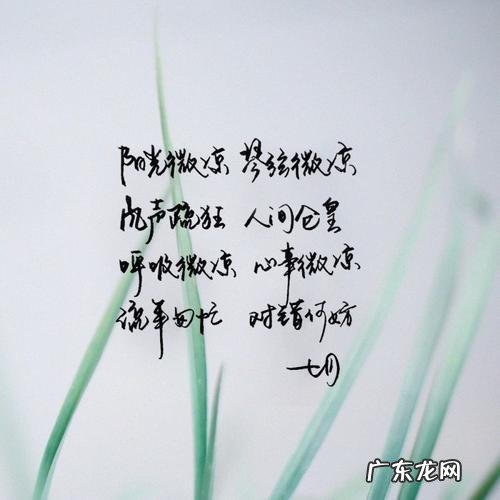 阳光微凉 琴弦微凉
风声疏狂 人间仓皇
呼吸微凉 心事微凉
流年匆忙 对错何妨
七月
广东龙网